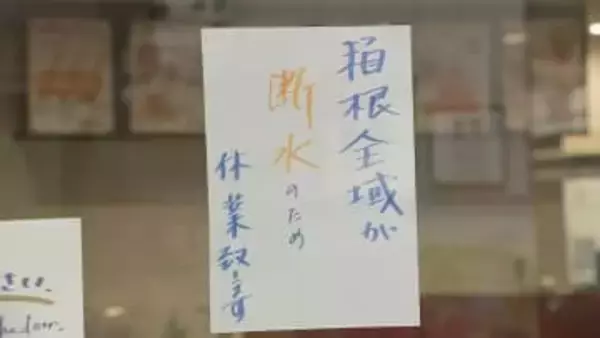 箱根全域が
断水のため
休業致します